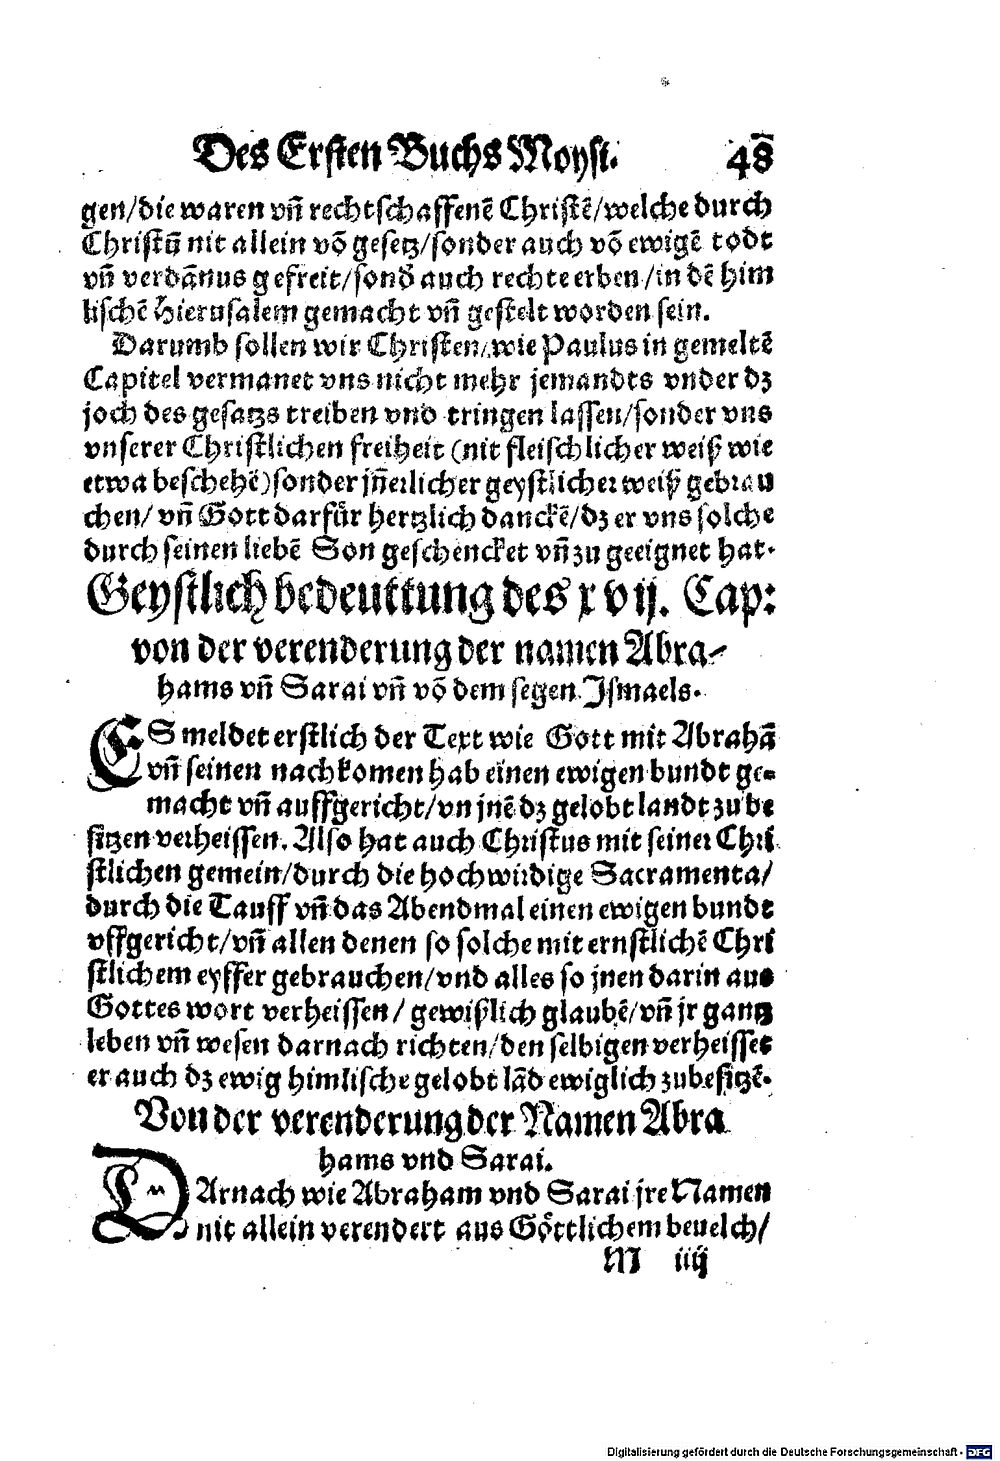 Des Ersten Buchs Moysi. 48
gen/die waren vñ rechtschaffenẽ Christẽ/welche durch
Christũ nit allein võ gesetz/sonder auch võ ewigẽ todt
vñ verdãnus gefreit/sond̃ auch rechte erben/in dẽ him
lischẽ Hierusalem gemacht vñ gestelt worden sein.
Darumb sollen wir Christen/wie Paulus in gemeltẽ
Capitel vermanet vns nicht mehr jemandts vnder dz
joch des gesatzs treiben vnd tringen lassen/sonder vns
vnserer Christlichen freiheit (nit fleischlicher weiß wie
etwa beschehẽ) sonder jñerlicher geystlicher weiß gebrau
chen/ vñ Gott darfür hertzlich danckẽ/dz er vns solche
durch seinen liebẽ Son geschencket vñ zu geeignet hat.
Geystlich bedeuttung des xvij. Cap:
von der verenderung der namen Abra-
hams vñ Sarai vñ võ dem segen Ismaels.
ES meldet erstlich der Text wie Gott mit Abrahã
vñ seinen nachkomen hab einen ewigen bundt ge-
macht vñ auffgericht/vn jnẽ dz gelobt landt zu be
sitzen verheissen. Also hat auch Christus mit seiner Chri
stlichen gemein/durch die hochwirdige Sacramenta/
durch die Tauff vñ das Abendmal einen ewigen bundt
vffgericht/vñ allen denen so solche mit ernstlichẽ Chri
stlichem eyffer gebrauchen/vnd alles so jnen darin aus
Gottes wort verheissen/ gewißlich glaubẽ/vñ jr gantz
leben vñ wesen darnach richten/den selbigen verheisset
er auch dz ewig himlische gelobt lãd ewiglich zubesitzẽ.
Von der verenderung der Namen Abra
hams vnd Sarai.
DArnach wie Abraham vnd Sarai jre Namen
nit allein verendert aus Göttlichem beuelch/
M iiij
Digitalisierung gefördert durch die Deutsche Forschungsgemeinschaft - DFG